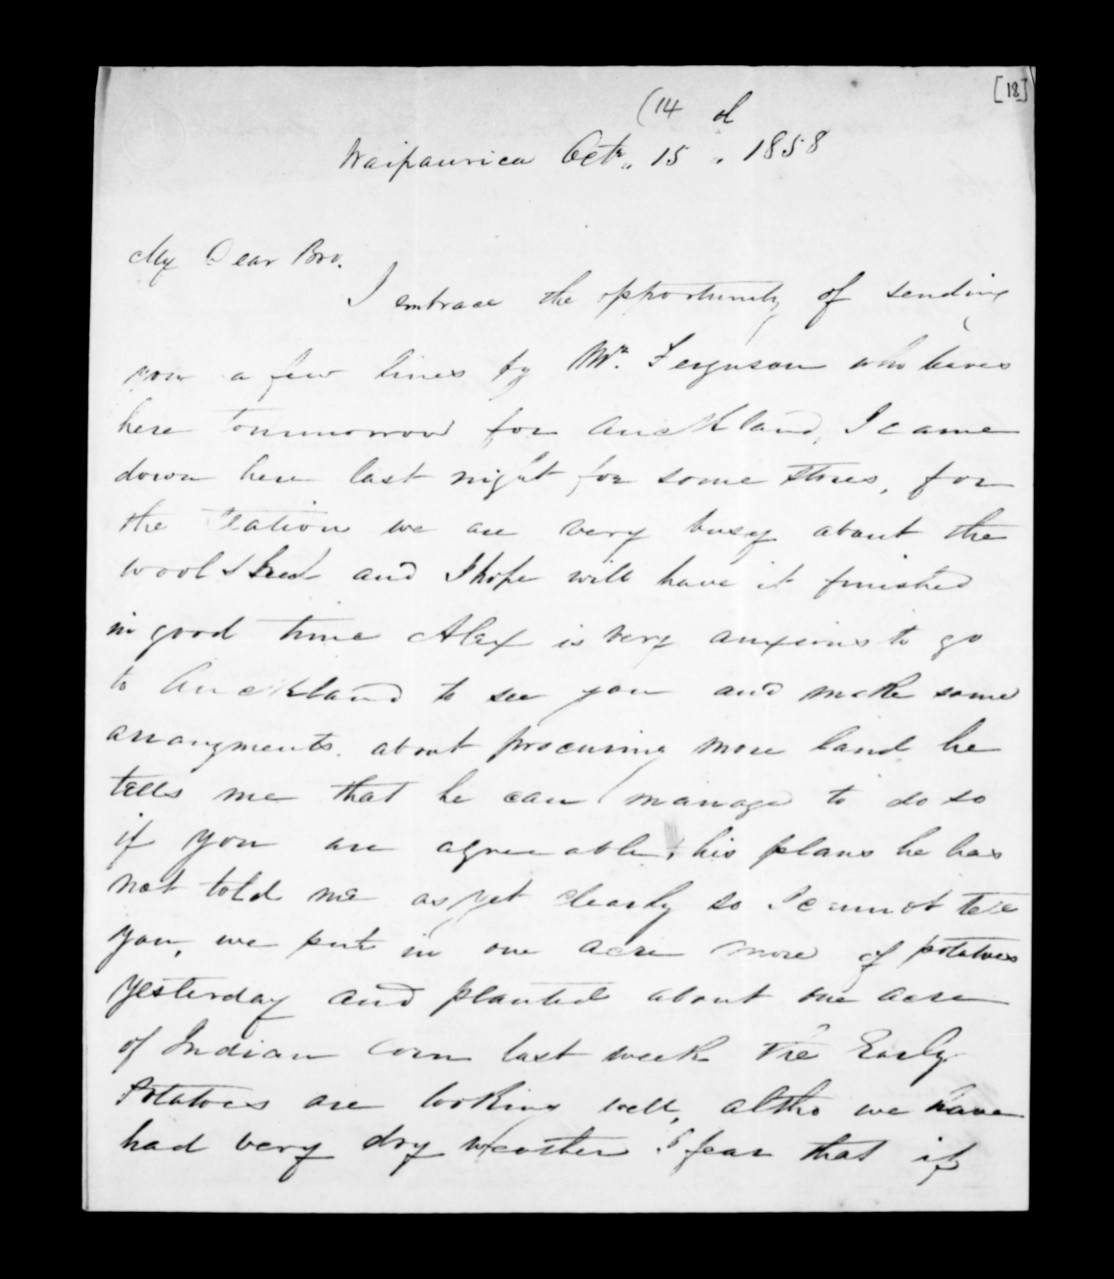 [18]
(14
Waipaurica Octr. 15 " 1858
My Dear Bro.
I embrace the opportunity of sending
you a few lines by Mr. Ferguson who leaves
here tommorrow for Auckland, I came
down here last night for some stores, for
the Station we are very busy about the
wool Shed and I hope will have it finished
in good time Alex is very anxious to go
to Auckland to see you and make some
arrangments about procuring more land he
tells me that he can manage to do so
if you are agreeable, his plans he has
not told me as yet clearly so I cannot tell
you, we put in one acre more of potatoes
yesterday and planted about one acre
of Indian Corn last week the Early
Potatoes are looking well, altho we have
had very dry weather I fear that if